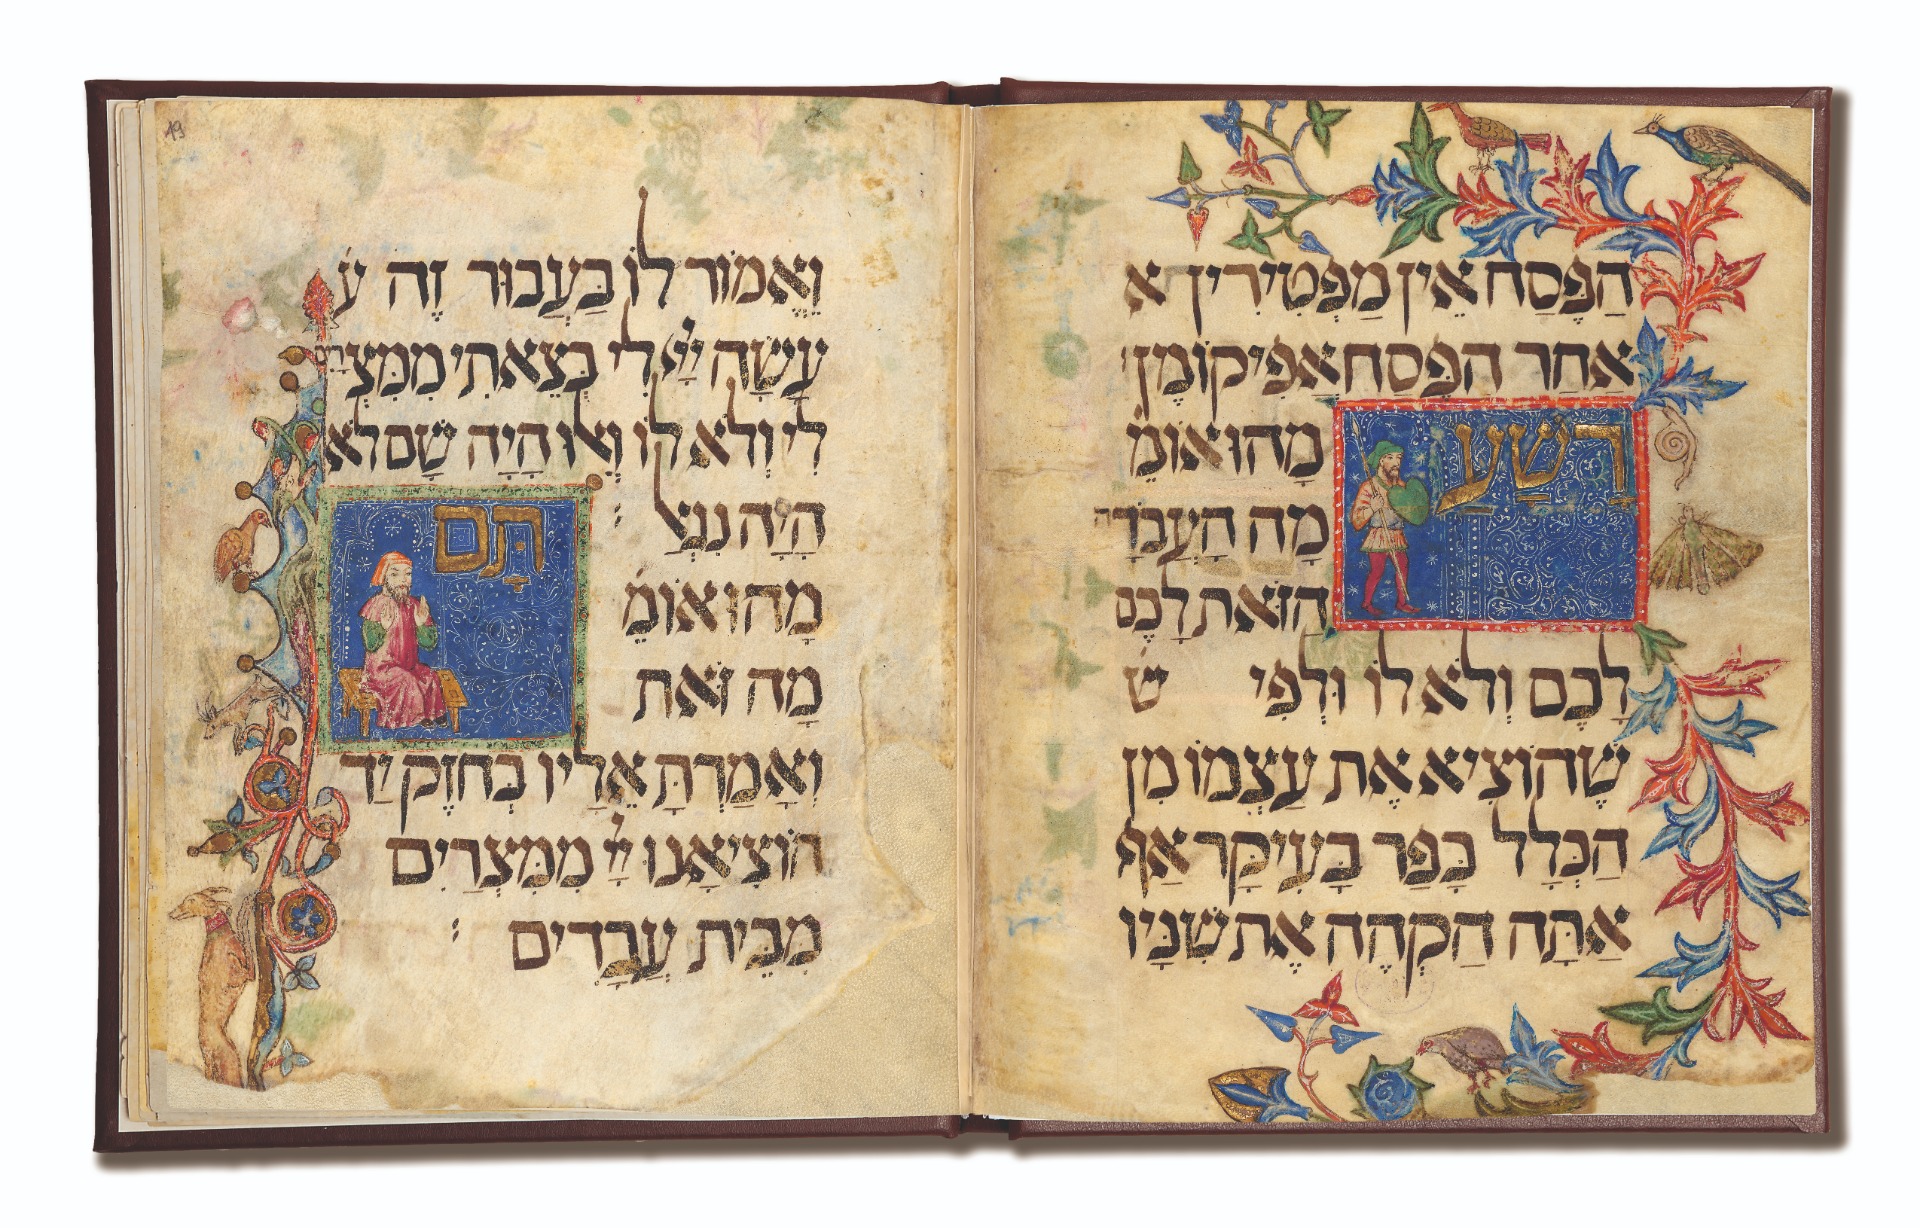 הַפֶּסַח אֵין מַפְטִירִין א
אַחַר הַפֶּסַח אֲפִיקוֹמֶן
רָשָׁע
מָהוּ אוֹמֵ
מָה הָעֲבֹדָה
הַזֹּאת לָכֶם
לָכֶם וְלֹא לוֹ וּלְפִי ש
שֶׁהוֹצִיא אֶת עַצְמוֹ מִן
הַכְּלָל כָּפַר בָּעִיקָר אַף
אַתָּה הַקְהֵה אֶת שִׁנָּיו
19
וֶאֱמוֹר לוֹ בַּעֲבוּר זֶה ע
עָשָׂה יְיָ לִי בְּצֵאתִי מִמִּצְרַ
לִי וְלֹא לוֹ וְאִלּוּ הָיָה שָׁם לֹא
הָיָה נִגְאָל :
תָּם
מָהוּ אוֹמֵ
מָה זֹּאת
וְאָמַרְתָּ אֵלָיו בְּחֹזֶק יָד
הוֹצִיאָנוּ יְיָ מִמִּצְרַיִם
מִבֵּית עֲבָדִים :